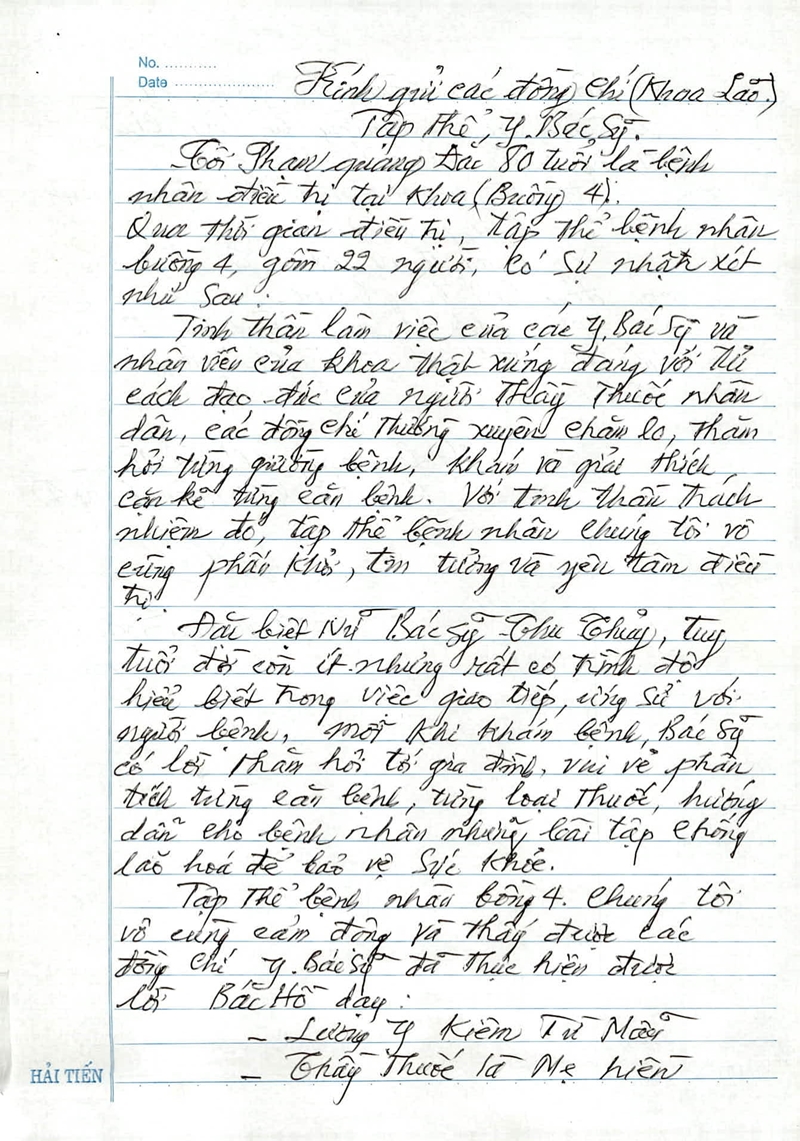 No. ...........
Date .........................
Kính gửi các đồng chí (Khoa Lão.)
Tập thể, Y. Bác Sỹ.
Tôi Phạm quảng Đắc 80 tuổi là bệnh
nhân điều trị tại khoa (Buồng 4).
Qua thời gian điều trị, tập thể bệnh nhân
buồng 4, gồm 22 người, có sự nhận xét
như sau:
Tinh thần làm việc của các Y. Bác Sỹ và
nhân viên của khoa thật xứng đáng với tư
cách đạo đức của người Thầy Thuốc nhân
dân, các đồng chí thường xuyên chăm lo, thăm
hỏi từng giường bệnh, khám và giải thích
cặn kẽ từng căn bệnh. Với tinh thần trách
nhiệm đó, tập thể bệnh nhân chúng tôi vô
cùng phấn khởi, tin tưởng và yên tâm điều
trị.
Đặc biệt Nữ Bác Sỹ Thu Thủy, tuy
tuổi đời còn ít nhưng rất có trình độ
hiểu biết trong việc giao tiếp, ứng sử với
người bệnh, mỗi khi khám bệnh, Bác Sỹ
có lời thăm hỏi tới gia đình, vui vẻ phân
tích từng căn bệnh, từng loại thuốc, hướng
dẫn cho bệnh nhân những bài tập chống
lão hoá để bảo vệ sức khoẻ.
Tập thể bệnh nhân bồng 4. Chúng tôi
vô cùng cảm động và thấy được các
đồng chí Y. Bác Sỹ đã thực hiện được
lời Bác Hồ dạy:
- Lương Y Kiêm Từ Mẫu
- Thầy Thuốc là Mẹ hiền
HẢI TIẾN